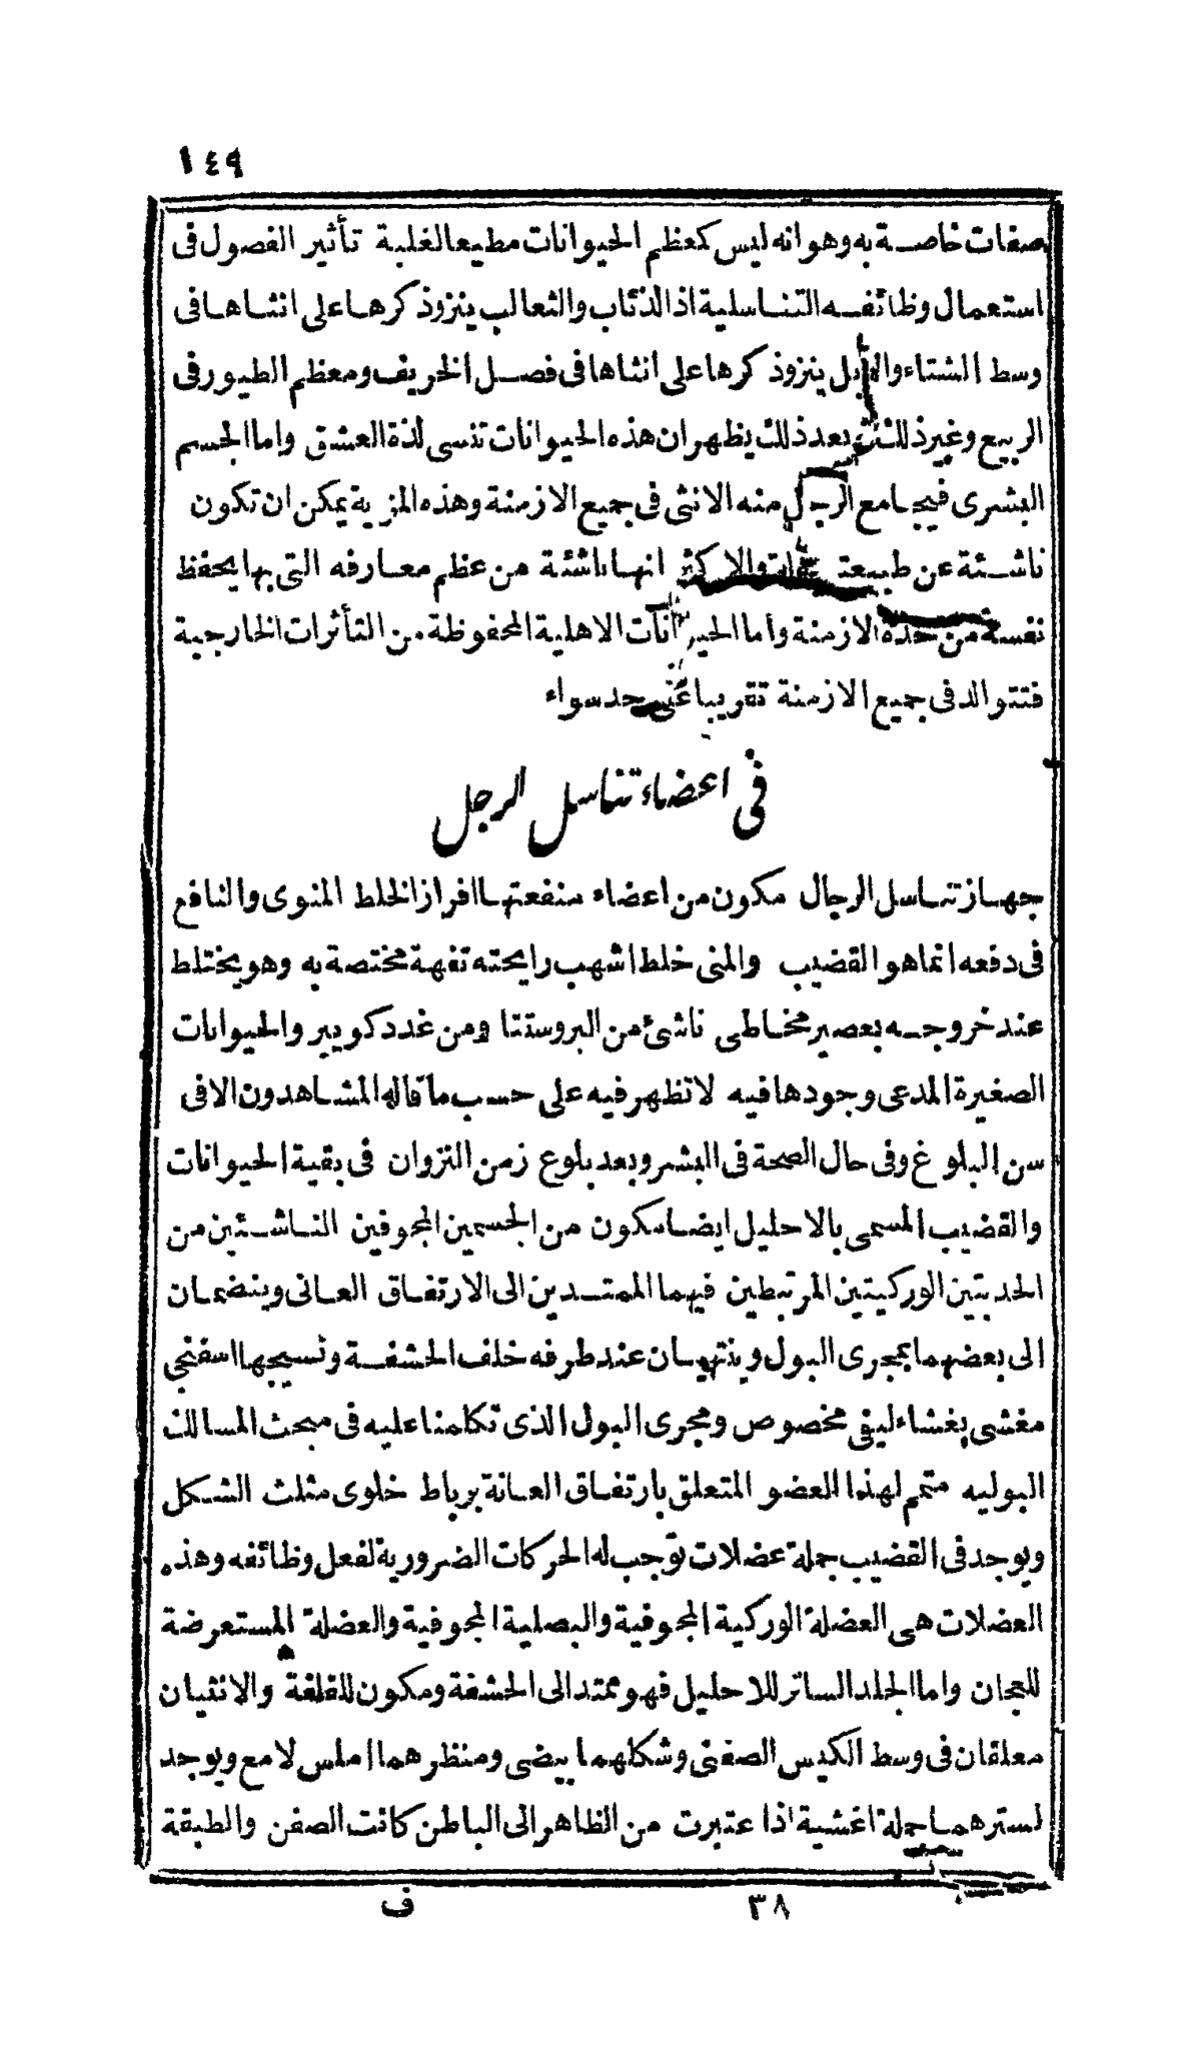 ١٤٩
صفات خاصة به وهو انه ليس كمعظم الحيوانات مطيعا لغلبة تأثير الفصول فى
استعمال وظائفه التناسلية اذ الذئاب والثعالب ينزوذ كرها على انثاها فى
وسط الشتاء والابل ينزوذ كرها على انثاها فى فصل الخريف ومعظم الطيور فى
الربيع وغير ذلك وبعد ذلك يظهر ان هذه الحيوانات تنسى لذة العشق واما الجسم
البشرى فيجامع الرجل منه الانثى فى جميع الازمنة وهذه المزية يمكن ان تكون
ناشئة عن طبيعته والاكثر انها ناشئة من عظم معارفه التى بها يحفظ
نفسه من حدة الازمنة واما الحيوانات الاهلية المحفوظة من التأثرات الخارجية
فتتوالد فى جميع الازمنة تقريبا على حد سواء
فى اعضاء تناسل الرجل
جهاز تناسل الرجال مكون من اعضاء منفعتها افراز الخلط المنوى والنافع
فى دفعه انما هو القضيب والمنى خلط اشهب رايحته تفهة مختصة به وهو يختلط
عند خروجه بعصير مخاطى ناشئ من البروستتا ومن غدد كوبير والحيوانات
الصغيرة المدعى وجودها فيه لا تظهر فيه على حسب ما قاله المشاهدون الا فى
سن البلوغ وفى حال الصحة فى البشر وبعد بلوع زمن النزوان فى بقية الحيوانات
والقضيب المسمى بالاحليل ايضا مكون من الجسمين المجوفين الناشئين من
الحدبتين الوركيتين المرتبطين فيهما الممتدين الى الارتفاق العانى وينضمان
الى بعضهما بمجرى البول وينتهيان عند طرفه خلف الحشفة ونسيجها اسفنجى
مغشى بغشاء ليفى مخصوص ومجرى البول الذى تكلمنا عليه فى مبحث المسالك
البوليه متمم لهذا العضو المتعلق بارتفاق العانة برباط خلوى مثلث الشكل
ويوجد فى القضيب جملة عضلات توجب له الحركات الضرورية لفعل وظائفه وهذه
العضلات هى العضلة الوركية المجوفية والبصلية المجوفية والعضلة المستعرضة
للعجان واما الجلد الساتر للاحليل فهو ممتد الى الحشفة ومكون للقلفة والانثيان
معلقان فى وسط الكيس الصفنى وشكلهما بيضى ومنظرهما املس لامع ويوجد
لسترهما جملة اغشية اذا عتبرت من الظاهر الى الباطن كانت الصفن والطبقة
٣٨ ف